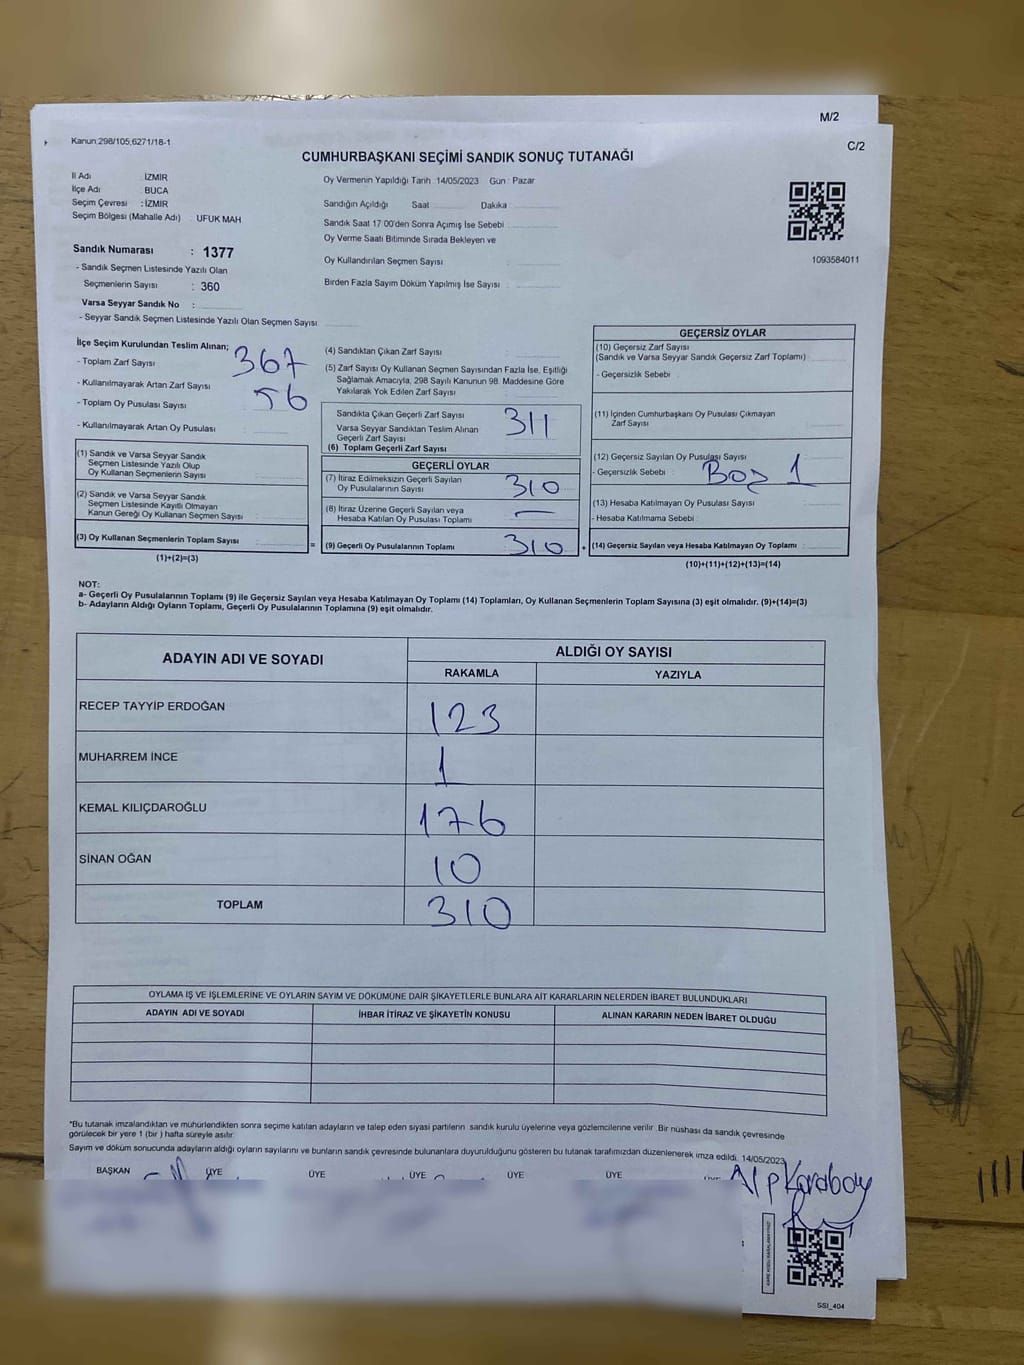 M/2
C/2
Kanun:298/105;6271/18-1
CUMHURBAŞKANI SEÇİMİ SANDIK SONUÇ TUTANAĞI
İl Adı : İZMİR
İlçe Adı : BUCA
Seçim Çevresi : İZMİR
Seçim Bölgesi (Mahalle Adı) UFUK MAH
Oy Vermenin Yapıldığı Tarih 14/05/2023 Gün : Pazar
Sandığın Açıldığı Saat Dakika
Sandık Saat 17:00'den Sonra Açımış İse Sebebi
Oy Verme Saati Bitiminde Sırada Bekleyen ve
Oy Kullandırılan Seçmen Sayısı :
Birden Fazla Sayım Döküm Yapılmış İse Sayısı :
1093584011
Sandık Numarası : 1377
- Sandık Seçmen Listesinde Yazılı Olan
Seçmenlerin Sayısı : 360
Varsa Seyyar Sandık No :
- Seyyar Sandık Seçmen Listesinde Yazılı Olan Seçmen Sayısı
İlçe Seçim Kurulundan Teslim Alınan;
- Toplam Zarf Sayısı 367
- Kullanılmayarak Artan Zarf Sayısı 56
- Toplam Oy Pusulası Sayısı
- Kullanılmayarak Artan Oy Pusulası :
(1) Sandık ve Varsa Seyyar Sandık
Seçmen Listesinde Yazılı Olup
Oy Kullanan Seçmenlerin Sayısı :
(2) Sandık ve Varsa Seyyar Sandık
Seçmen Listesinde Kayıtlı Olmayan
Kanun Gereği Oy Kullanan Seçmen Sayısı :
(3) Oy Kullanan Seçmenlerin Toplam Sayısı :
(1)+(2)=(3)
(4) Sandıktan Çıkan Zarf Sayısı
(5) Zarf Sayısı Oy Kullanan Seçmen Sayısından Fazla İse, Eşitliği
Sağlamak Amacıyla, 298 Sayılı Kanunun 98. Maddesine Göre
Yakılarak Yok Edilen Zarf Sayısı :
Sandıkta Çıkan Geçerli Zarf Sayısı
Varsa Seyyar Sandıktan Teslim Alınan
Geçerli Zarf Sayısı
(6) Toplam Geçerli Zarf Sayısı
311
GEÇERLİ OYLAR
(7) İtiraz Edilmeksizin Geçerli Sayılan
Oy Pusulalarının Sayısı : 310
(8) İtiraz Üzerine Geçerli Sayılan veya
Hesaba Katılan Oy Pusulası Toplamı : —
= (9) Geçerli Oy Pusulalarının Toplamı : 310 +
GEÇERSİZ OYLAR
(10) Geçersiz Zarf Sayısı
(Sandık ve Varsa Seyyar Sandık Geçersiz Zarf Toplamı)
- Geçersizlik Sebebi :
(11) İçinden Cumhurbaşkanı Oy Pusulası Çıkmayan
Zarf Sayısı
(12) Geçersiz Sayılan Oy Pusulası Sayısı
- Geçersizlik Sebebi : Boş 1
(13) Hesaba Katılmayan Oy Pusulası Sayısı
- Hesaba Katılmama Sebebi :
(14) Geçersiz Sayılan veya Hesaba Katılmayan Oy Toplamı :
(10)+(11)+(12)+(13)=(14)
NOT:
a- Geçerli Oy Pusulalarının Toplamı (9) ile Geçersiz Sayılan veya Hesaba Katılmayan Oy Toplamı (14) Toplamları, Oy Kullanan Seçmenlerin Toplam Sayısına (3) eşit olmalıdır. (9)+(14)=(3)
b- Adayların Aldığı Oyların Toplamı, Geçerli Oy Pusulalarının Toplamına (9) eşit olmalıdır.
ADAYIN ADI VE SOYADI
ALDIĞI OY SAYISI
RAKAMLA YAZIYLA
RECEP TAYYİP ERDOĞAN 123
MUHARREM İNCE 1
KEMAL KILIÇDAROĞLU 176
SİNAN OĞAN 10
TOPLAM 310
OYLAMA İŞ VE İŞLEMLERİNE VE OYLARIN SAYIM VE DÖKÜMÜNE DAİR ŞİKAYETLERLE BUNLARA AİT KARARLARIN NELERDEN İBARET BULUNDUKLARI
ADAYIN ADI VE SOYADI İHBAR İTİRAZ VE ŞİKAYETİN KONUSU ALINAN KARARIN NEDEN İBARET OLDUĞU
*Bu tutanak imzalandıktan ve mühürlendikten sonra seçime katılan adayların ve talep eden siyasi partilerin sandık kurulu üyelerine veya gözlemcilerine verilir. Bir nüshası da sandık çevresinde
görülecek bir yere 1 (bir ) hafta süreyle asılır.
Sayım ve döküm sonucunda adayların aldığı oyların sayılarını ve bunların sandık çevresinde bulunanlara duyurulduğunu gösteren bu tutanak tarafımızdan düzenlenerek imza edildi. 14/05/2023
BAŞKAN ÜYE ÜYE ÜYE ÜYE ÜYE
Alp Karaboy
SSI_404